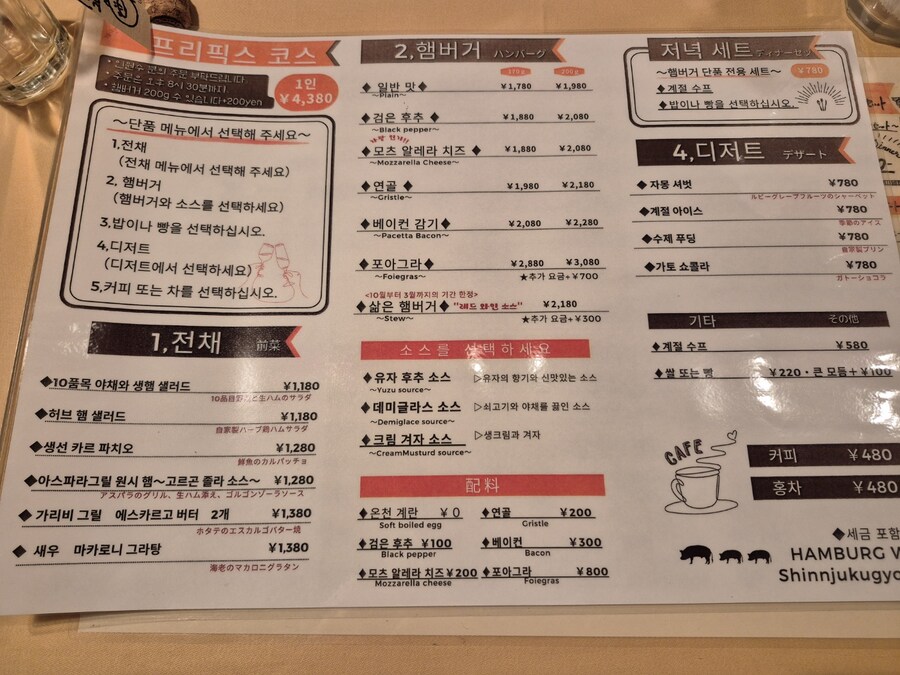 프리픽스 코스
• 인원수 분의 주문 부탁드립니다.
• 주문은 오후 8시 30분까지.
• 햄버거 200g 수 있습니다+200yen
1인
¥4,380
～단품 메뉴에서 선택해 주세요～
1,전채
(전채 메뉴에서 선택해 주세요)
2, 햄버거
(햄버거와 소스를 선택하세요)
3,밥이나 빵을 선택하십시오.
4,디저트
(디저트에서 선택하세요)
5,커피 또는 차를 선택하십시오.
1,전채 前菜
◆10품목 야채와 생햄 샐러드 ¥1,180
10品目野菜と生ハムのサラダ
◆허브 햄 샐러드 ¥1,180
自家製ハーブ鶏ハムサラダ
◆생선 카르 파치오 ¥1,280
鮮魚のカルパッチョ
◆아스파라그릴 원시 햄～고르곤 졸라 소스～ ¥1,280
アスパラのグリル、生ハム添え、ゴルゴンゾーラソース
◆ 가리비 그릴 에스카르고 버터 2개 ¥1,380
ホタテのエスカルゴバター焼
◆ 새우 마카로니 그라탕 ¥1,380
海老のマカロニグラタン
2,햄버거 ハンバーグ
◆ 일반 맛◆ ¥1,780 ¥1,980
～Plain～
◆검은 후추 ◆ ¥1,880 ¥2,080
～Black pepper～
◆모츠 알레라 치즈 ◆ ¥1,880 ¥2,080
～Mozzarella Cheese～
◆연골◆ ¥1,980 ¥2,180
～Gristle～
◆베이컨 감기◆ ¥2,080 ¥2,280
～Pacetta Bacon～
◆포아그라◆ ¥2,880 ¥3,080
～Foiegras～ ★추가 요금+￥700
<10월부터 3월까지의 기간 한정>
◆삶은 햄버거◆ "레드 와인 소스" ¥2,180
～Stew～ ★추가 요금+￥300
소스를 선택하세요
◆유자 후추 소스 ▷유자의 향기와 신맛있는 소스
～Yuzu source～
◆데미글라스 소스 ▷쇠고기와 야채를 끓인 소스
～Demiglace source～
◆크림 겨자 소스 ▷생크림과 겨자
～CreamMusturd source～
配料
◆온천 계란 ¥ 0 ◆연골 ¥200
Soft boiled egg Gristle
◆검은 후추 ¥100 ◆베이컨 ¥300
Black pepper Bacon
◆모츠 알레라 치즈¥200 ◆포아그라 ¥800
Mozzarella cheese Foiegras
저녁 세트 ディナーセット
～햄버거 단품 전용 세트～ ¥780
◆계절 수프
◆밥이나 빵을 선택하십시오.
4,디저트 デザート
◆ 자몽 셔벗 ¥780
ルビーグレープフルーツのシャーベット
◆계절 아이스 ¥780
季節のアイス
◆수제 푸딩 ¥780
自家製プリン
◆가토 쇼콜라 ¥780
ガトーショコラ
기타 その他
◆계절 수프 ¥580
◆쌀 또는 빵 ¥220・큰 모듬＋¥100
CAFE
커피 ¥480
홍차 ¥480
◆세금 포함
HAMBURG W
Shinnjukugyo